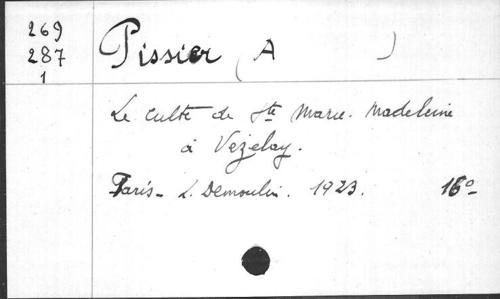 269
287
1
Pissier (A )
Le culte de Ste Marie-Madeleine
à Vézelay.
Paris - L. Demoulin. 1923. 16°